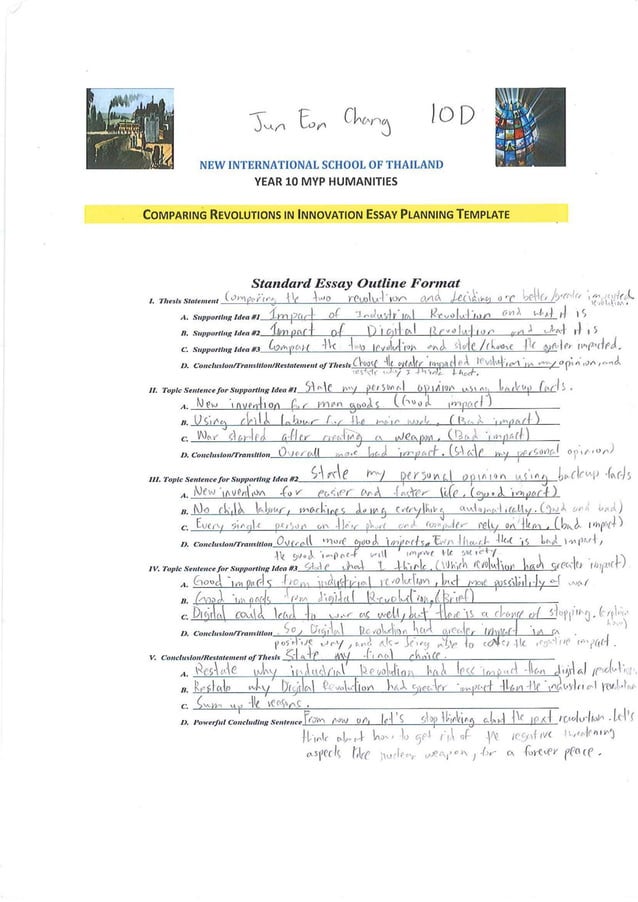 Jun Eon Chang 10D
NEW INTERNATIONAL SCHOOL OF THAILAND
YEAR 10 MYP HUMANITIES
COMPARING REVOLUTIONS IN INNOVATION ESSAY PLANNING TEMPLATE
Standard Essay Outline Format
I. Thesis Statement Comparing the two revolution and deciding one better/greater impacted revolution.
A. Supporting Idea #1 Impact of Industrial Revolution and what it is
B. Supporting Idea #2 Impact of Digital Revolution and what it is
C. Supporting Idea #3 Compare the two revolution and state/choose the greater impacted.
D. Conclusion/Transition/Restatement of Thesis Choose the greater impacted revolution in my opinion, and
restate why I think that.
II. Topic Sentence for Supporting Idea #1 State my personal opinion using backup facts.
A. New invention for man goods (Good impact)
B. Using child labour for the main work. (Bad impact)
C. War started after creating a weapon. (Bad impact)
D. Conclusion/Transition Overall more bad impact. (State my personal opinion)
III. Topic Sentence for Supporting Idea #2 State my personal opinion using backup facts
A. New invention for easier and faster life. (good impact)
B. No child labour, machines doing everything automatically. (Good and bad)
C. Every single person on their phone and computer rely on them. (bad impact)
D. Conclusion/Transition Overall more good impacts. Even though there is bad impact,
the good impact will improve the society.
IV. Topic Sentence for Supporting Idea #3 State what I think. (Which revolution had greater impact)
A. Good impacts from industrial revolution, but more possibility of war
B. Good impacts from digital Revolution. (Brief)
C. Digital could lead to war as well, but there is a chance of stopping. (Explain how)
D. Conclusion/Transition So, Digital Revolution had greater impact in a
positive way, and also being able to the negative impact.
V. Conclusion/Restatement of Thesis State my final choice.
A. Restate why industrial Revolution had less impact than digital revolution
B. Restate why Digital Revolution had greater impact than the industrial revolution
C. Sum up the reasons.
D. Powerful Concluding Sentence From now on, let's stop thinking about the next revolution. Let's
think about how to get rid of the negative threatening
aspects like nuclear weapon, for a forever peace.